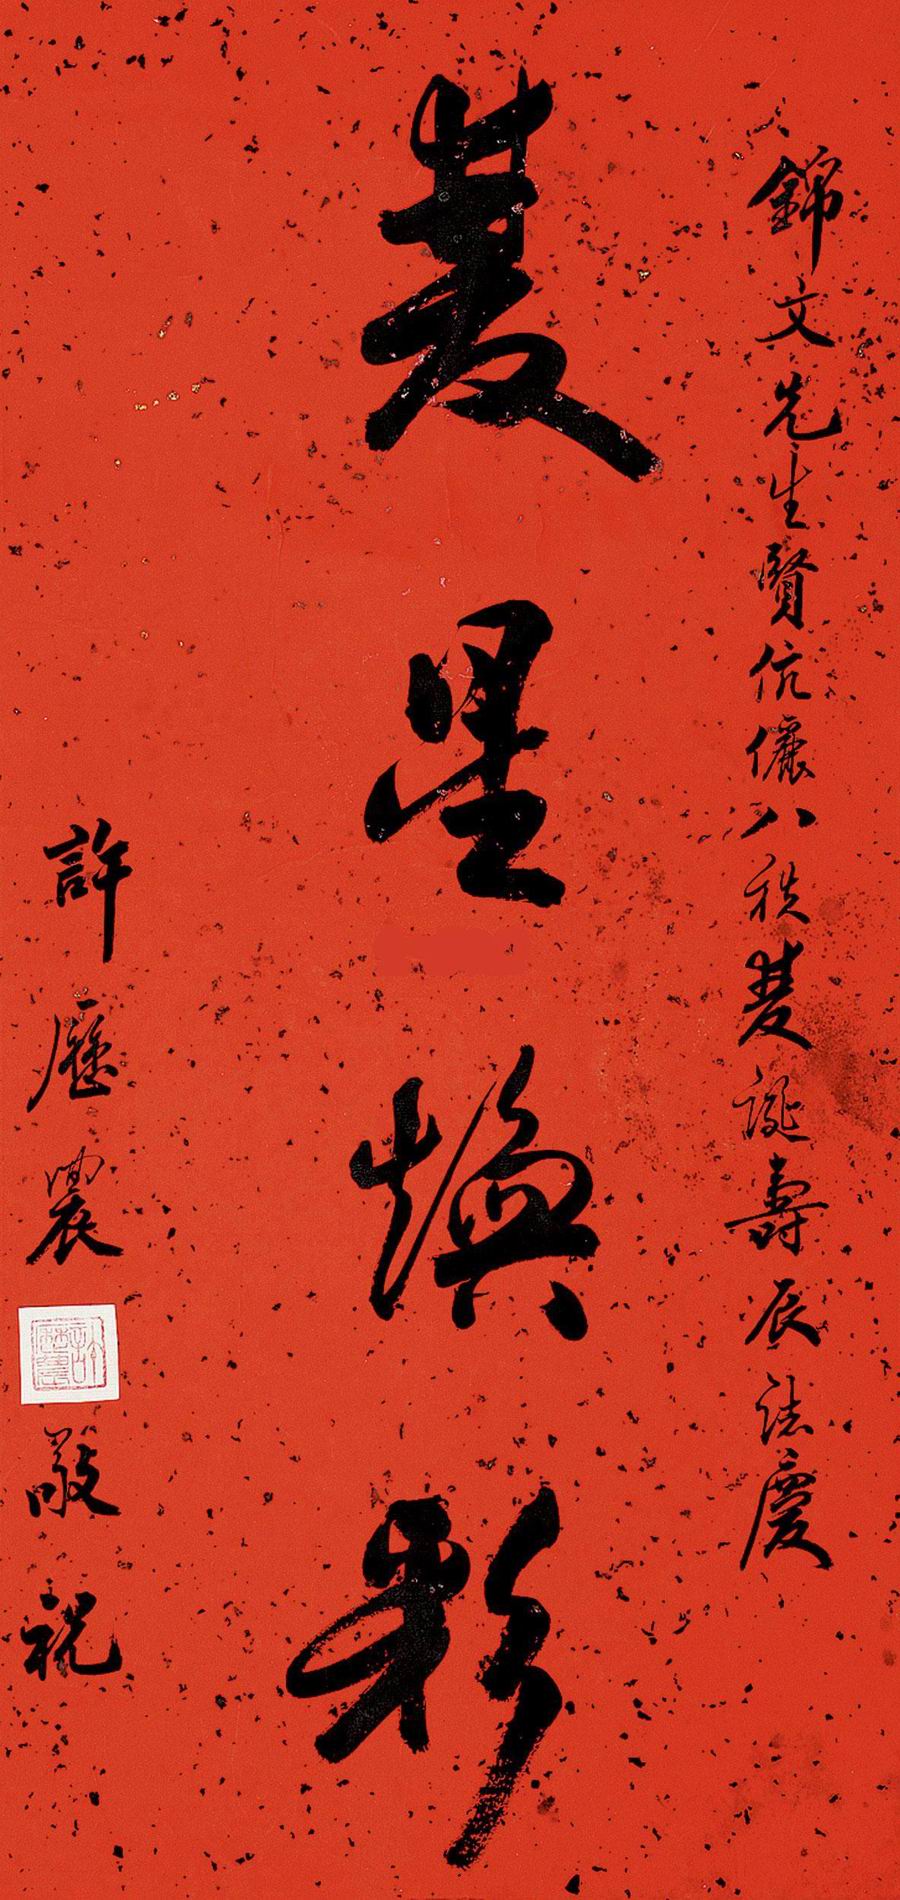 錦文先生賢伉儷八秩雙誕壽辰誌慶
雙星煥彩
許歷農敬祝
許歷農